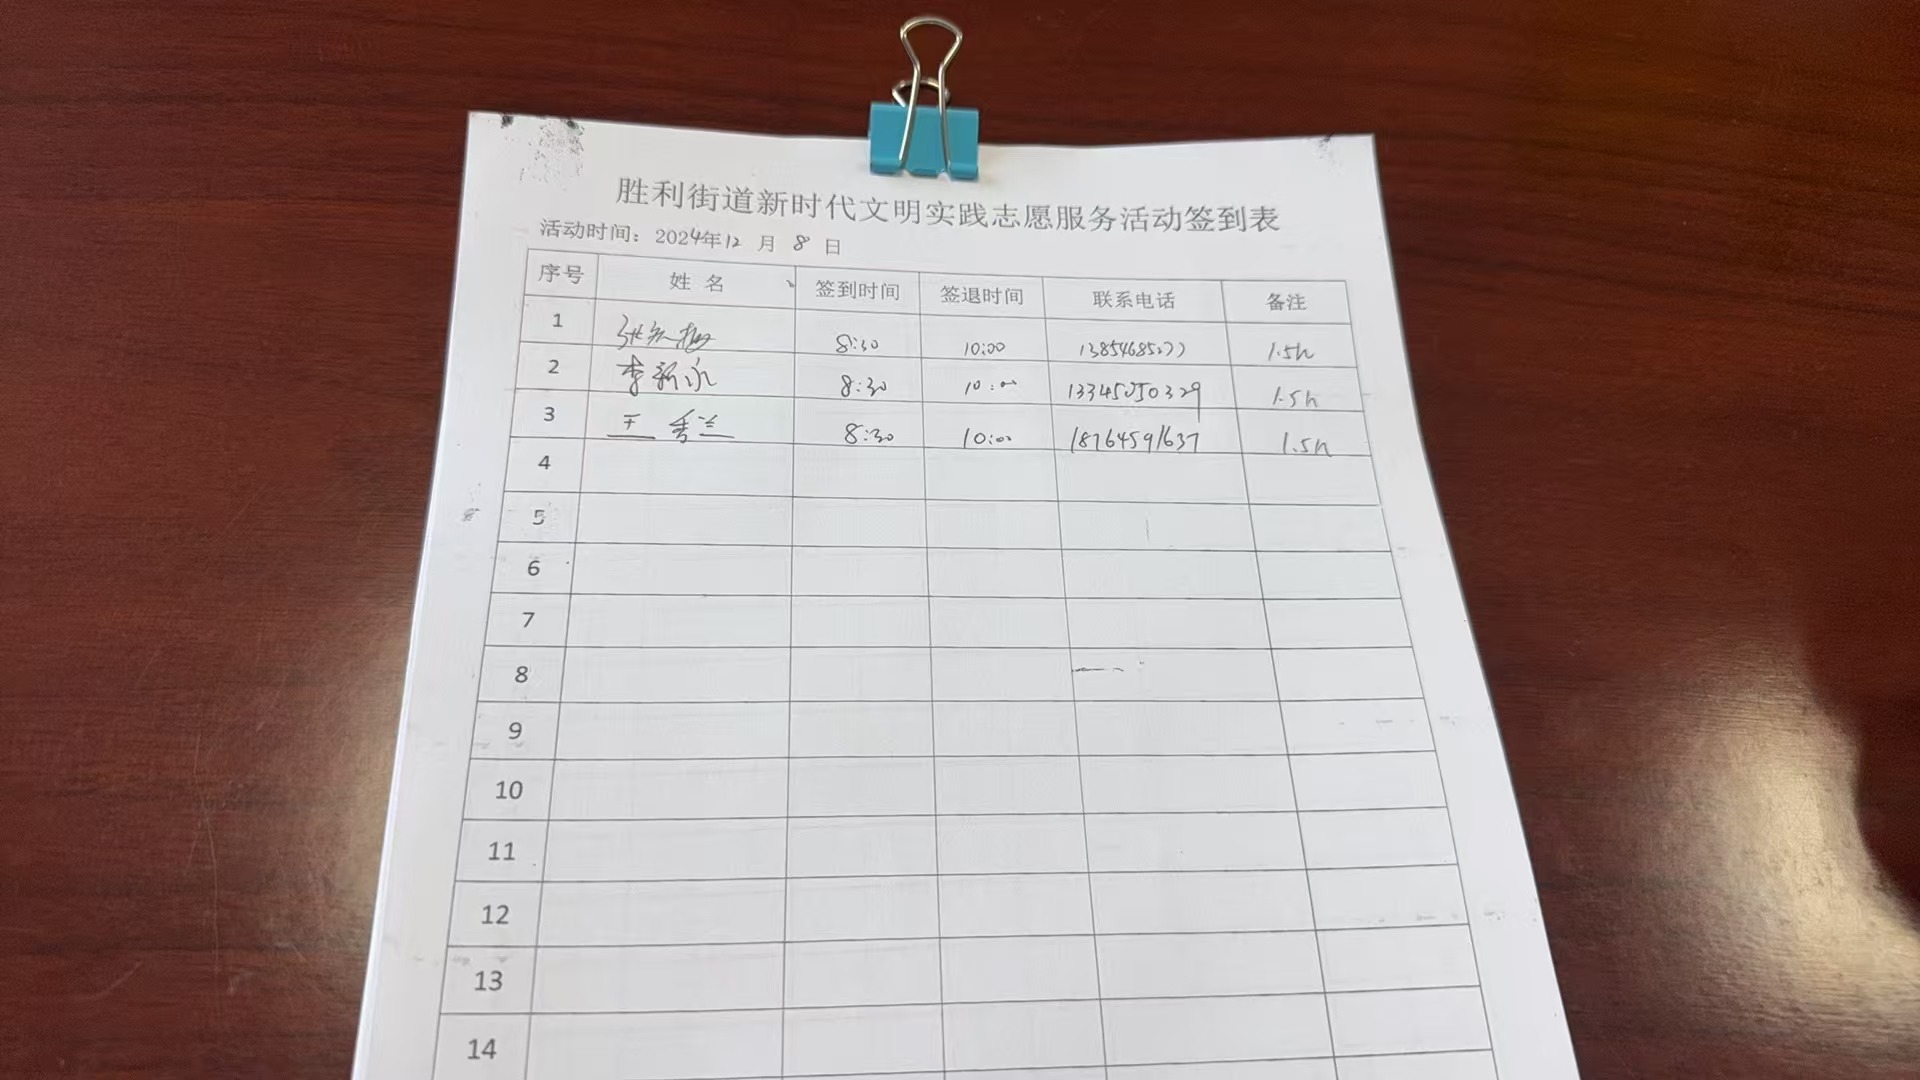 胜利街道新时代文明实践志愿服务活动签到表
活动时间：2024年12月8日
序号 姓名 签到时间 签退时间 联系电话 备注
1 张 梅 8:30 10:00 1.5h
2 李新永 8:30 10:00 1.5h
3 王秀兰 8:30 10:00 18764591637 1.5h
4
5
6
7
8
9
10
11
12
13
14